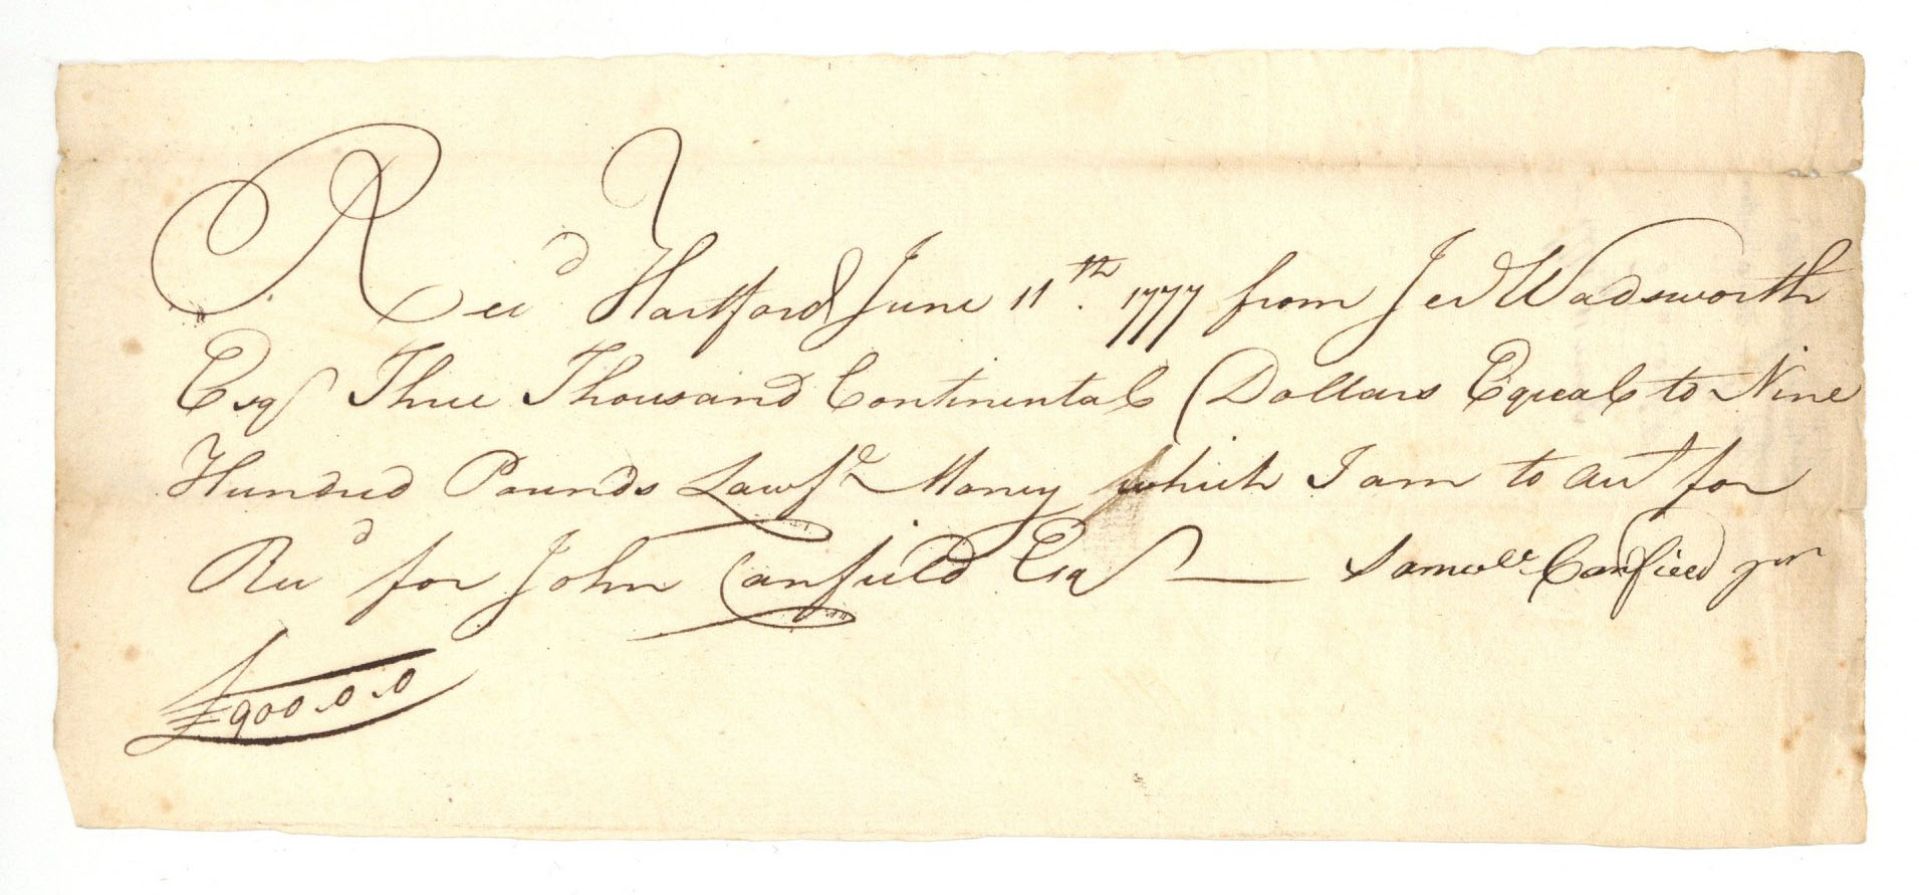 Recd Hartford June 11th. 1777 from Jer Wadsworth
Esqr Three Thousand Continental Dollars Equal to Nine
Hundred Pounds Lawfl Money which I am to acct for
Recd for John Canfield Esqr — Samuel Canfield Jur
£900.0.0